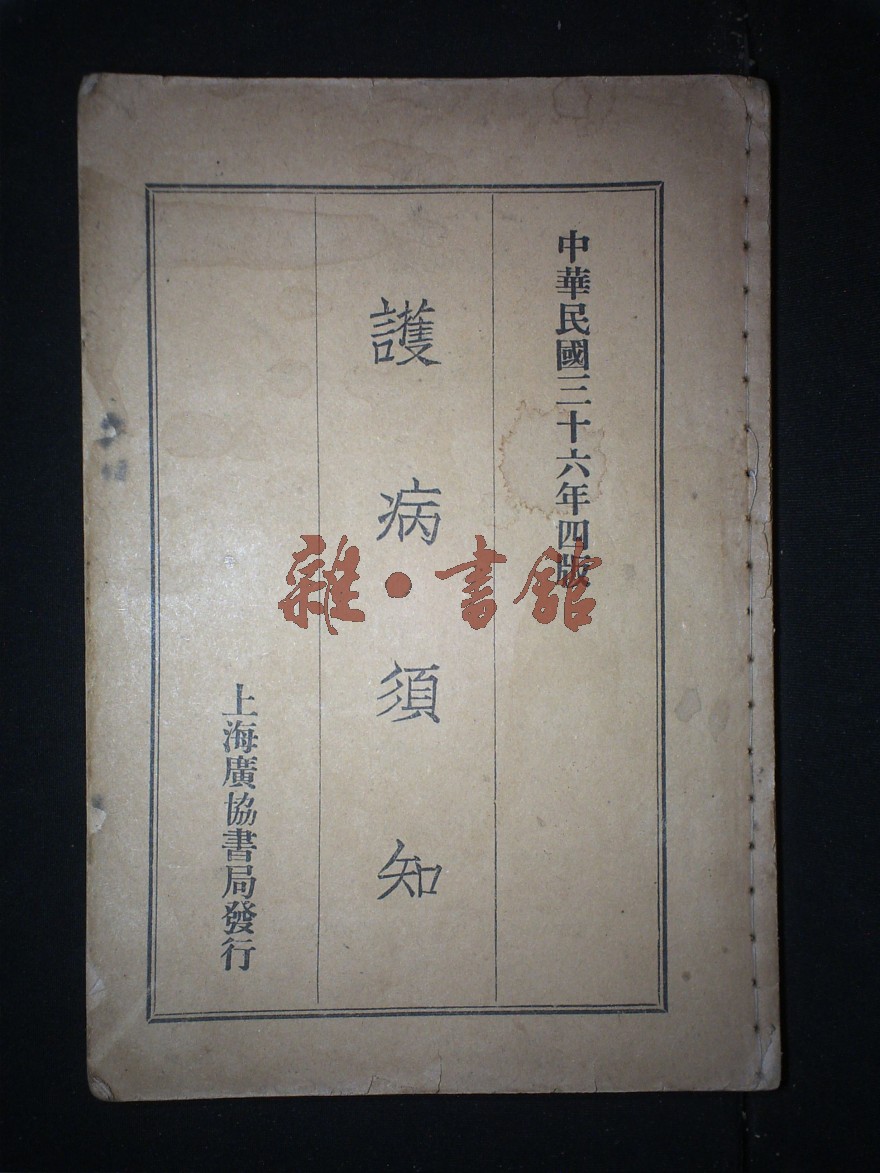 中華民國三十六年四版
護病須知
上海廣協書局發行
雜·書館